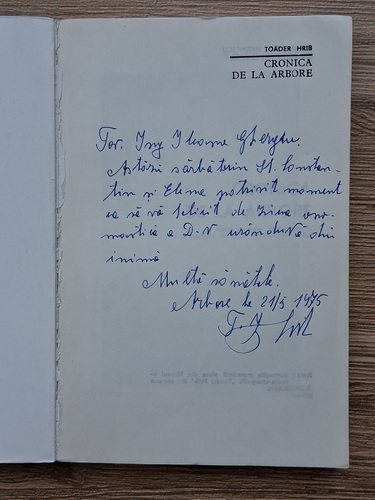 TOADER HRIB
CRONICA
DE LA ARBORE
Tov. Ing Gherghe.
Astăzi sărbătorim St. Constan-
tin și Elena potrivit moment
ca să vă felicit de ziua ono-
mastică a D-V urându-vă din
inimă
Multă sănătate.
Arbore la 21/5 1975
T. Hrib